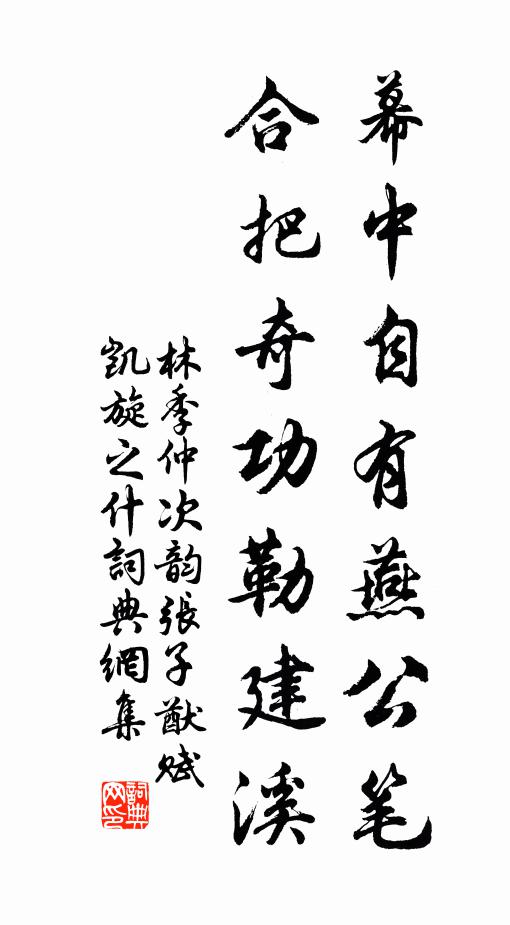 幕中自有燕公笔
合把奇功勒建溪
林季仲次韵張子猷赋
凱旋之什詞典網集
詞典网印